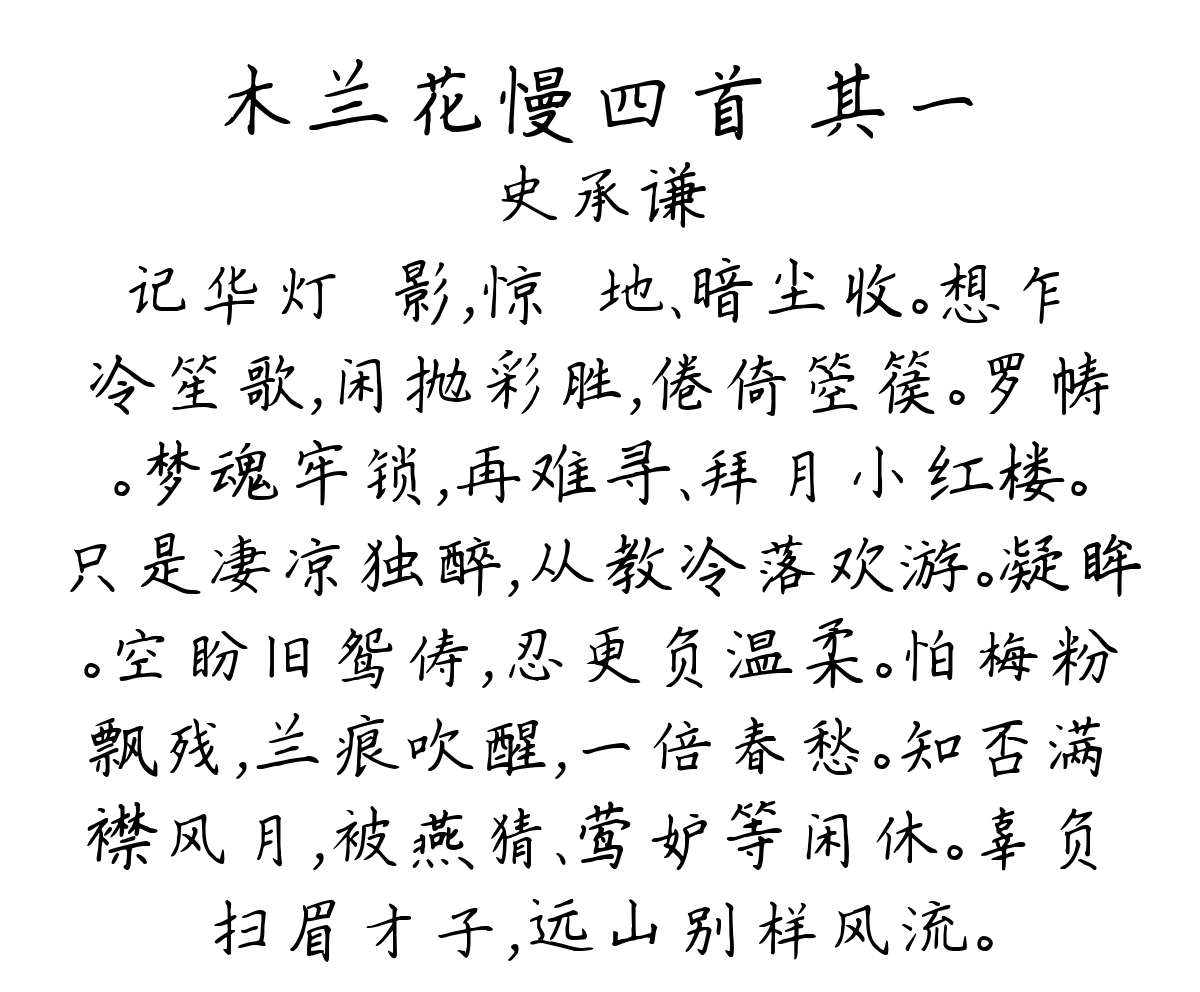 木兰花慢四首 其一
史承谦
记华灯 影,惊 地、暗尘收。想乍
冷笙歌,闲抛彩胜,倦倚箜篌。罗帱
。梦魂牢锁,再难寻、拜月小红楼。
只是凄凉独醉,从教冷落欢游。凝眸
。空盼旧鸳俦,忍更负温柔。怕梅粉
飘残,兰痕吹醒,一倍春愁。知否满
襟风月,被燕猜、莺妒等闲休。辜负
扫眉才子,远山别样风流。